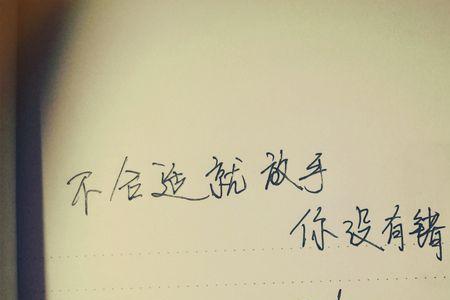 不合适就放手
你没有错